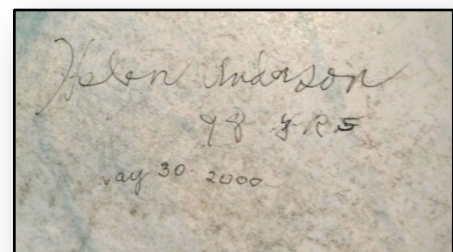 Helen Anderson
98 YRS
May 30 2000